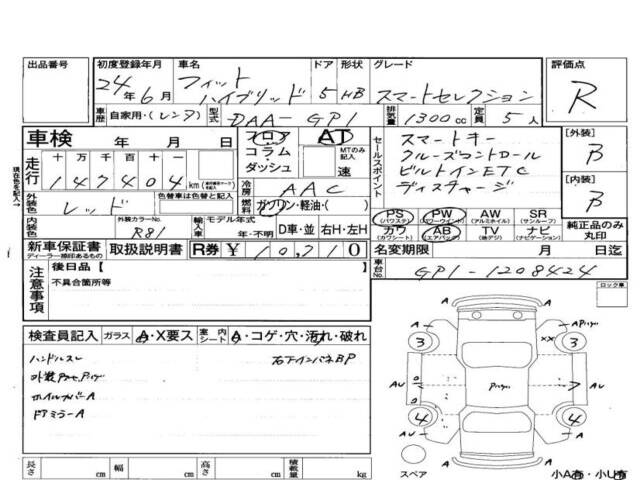 出品番号 初度登録年月 車名 ドア 形状 グレード 評価点
24年6月 フィット ハイブリッド 5 HB スマートセレクション R
車歴 自家用・(レンタ) 型式 DAA-GP1 排気量 1300cc 定員 5人
車検 年 月 日 フロア AT スマートキー [外装]
走行 十 万 千 百 十 一 コラム・ MTのみ記入 セールスポイント クルーズコントロール B
147404 km ダッシュ 速 ビルトインETC [内装]
現在色を記入→ 外装色 レッド 色替車は色替と記入 冷房 AAC ディスチャージ B
燃料 ガソリン・軽油・( )
PS PW AW SR
(パワステ) (パワーウインド) (アルミホイル) (サンルーフ)
カワ AB TV ナビ 純正品のみ
(カワシート) (エアバック) (地デジ) (ナビゲーション) 丸印
内装色 外装カラーNo. R81 輸入車 モデル年式 年・不明 D車・並 右H・左H
新車保証書 取扱説明書 R券 ¥10,710 名変期限 月 日迄
ディーラー捺印あるもの
車台No. GP1-1208424
注意事項 後日品【 】
不具合箇所等
ロック車
検査員記入 ガラス A・X要ス 室内シート A・コゲ・穴・汚れ・破れ
ハンドルスレ 右下インパネBP
ホイルカバーA
ドアミラーA
A A
3 3 XX
AU AU
4 4
AU A
スペア
長さ cm 幅 cm 高さ cm 積載量 kg 小A有・小U有